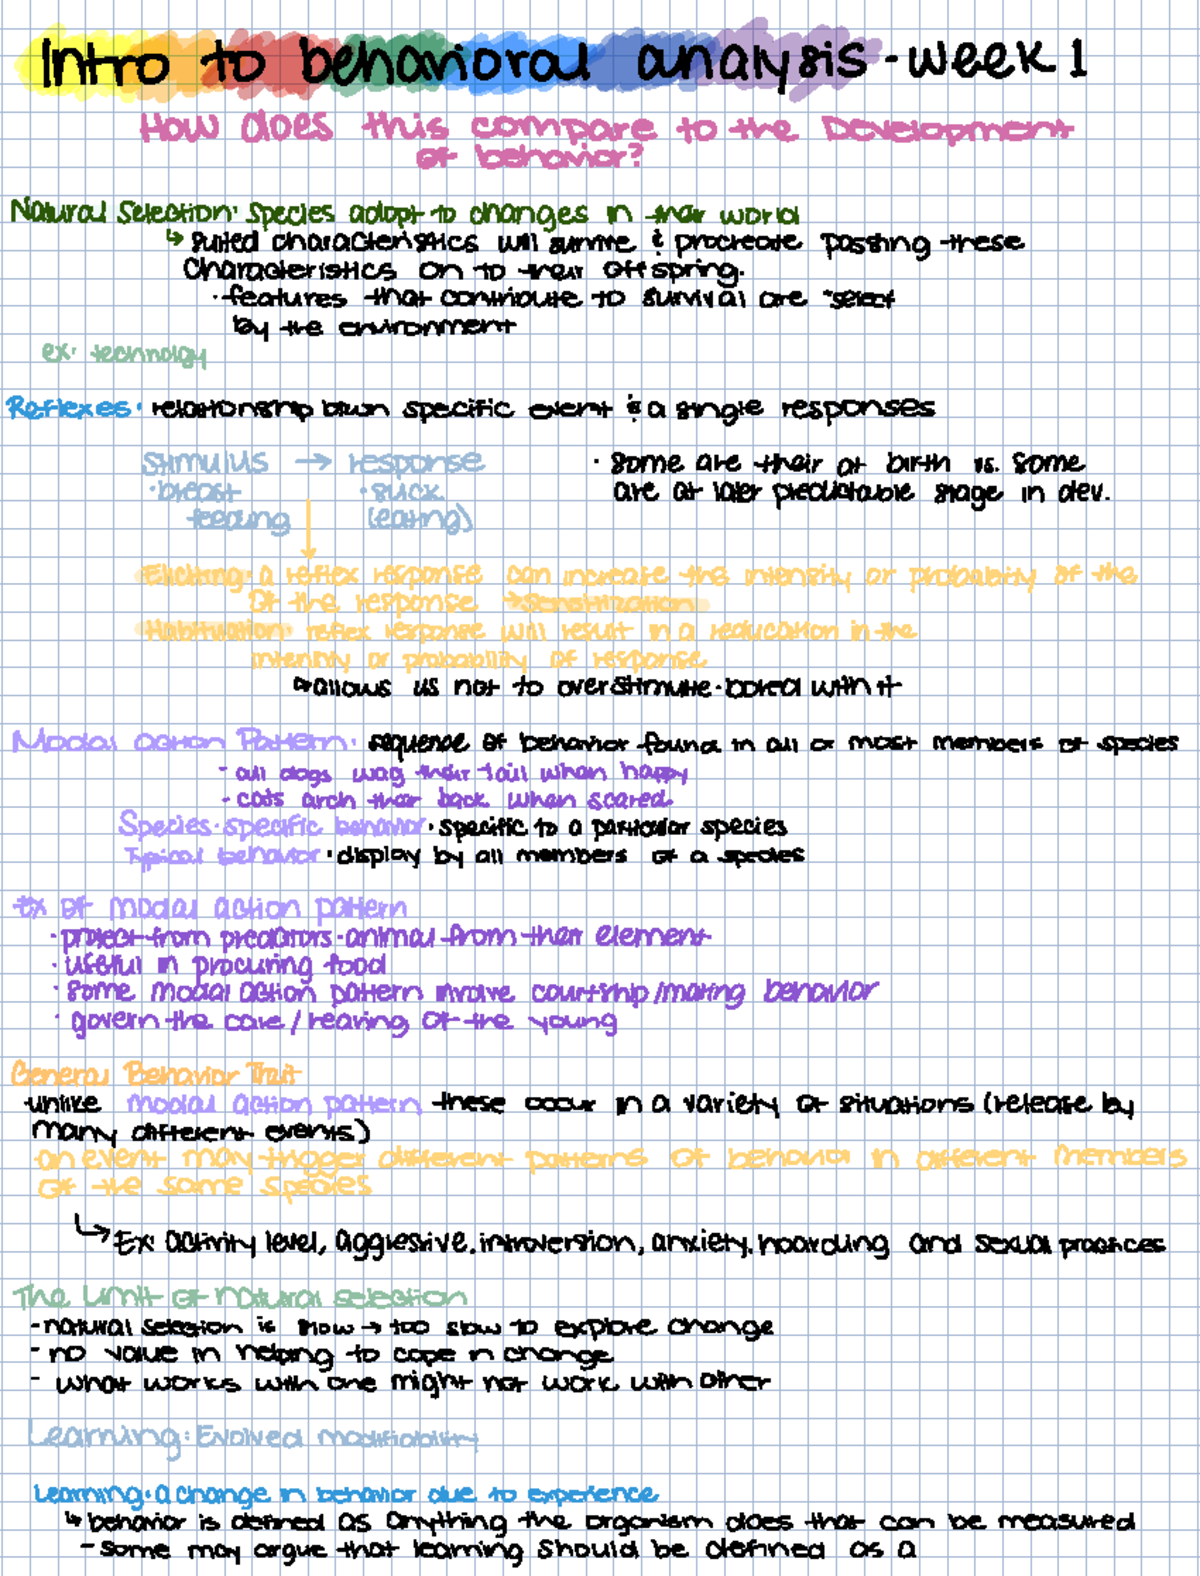 Intro to behavioral analysis - week 1
How does this compare to the Development
of behavior?
Natural Selection: Species adapt to changes in their world
↳ suited characteristics will survive & procreate passing these
characteristics on to their offspring.
· features that contribute to survival are "select
by the environment
ex: technolgy
Reflexes: relationship btwn specific event & a single responses
stimulus → response
· Some are their at birth vs. some
are at later predictable stage in dev.
· breast
feeding
· suck
(eating)
Eliciting: a reflex response can increase the intensity or probability of the
of the response → Sensitization
Habituation: reflex response will result in a reducation in the
intensity or probability of response
allows us not to overstimute · bored with it
Modal action Pattern: sequence of behavior found in all or most members of species
- all dogs wag their tail when happy
- cats arch their back when scared
Species-specific behavior · specific to a particular species
Typical behavior · display by all members of a species
Ex of modal action pattern
· protect from predators · animal from their element
· useful in procuring food
· Some modal action pattern involve courtship/mating behavior
· govern the care/rearing of the young
General Behavior Trait
·unlike modal action pattern these occur in a variety of situations (release by
many different events)
an event may trigger different patterns of behavior in different members
of the same species
↳ Ex: activity level, aggressive, introversion, anxiety, hoarding and sexual practices
The Limit of natural selection
- natural selection is slow → too slow to explore change
- no value in helping to cope in change
- what works with one might not work with other
Learning: Evolved modifiability
Learning: a change in behavior due to experience
↳ behavior is defined as anything the organism does that can be measured
- some may argue that learning should be defined as a